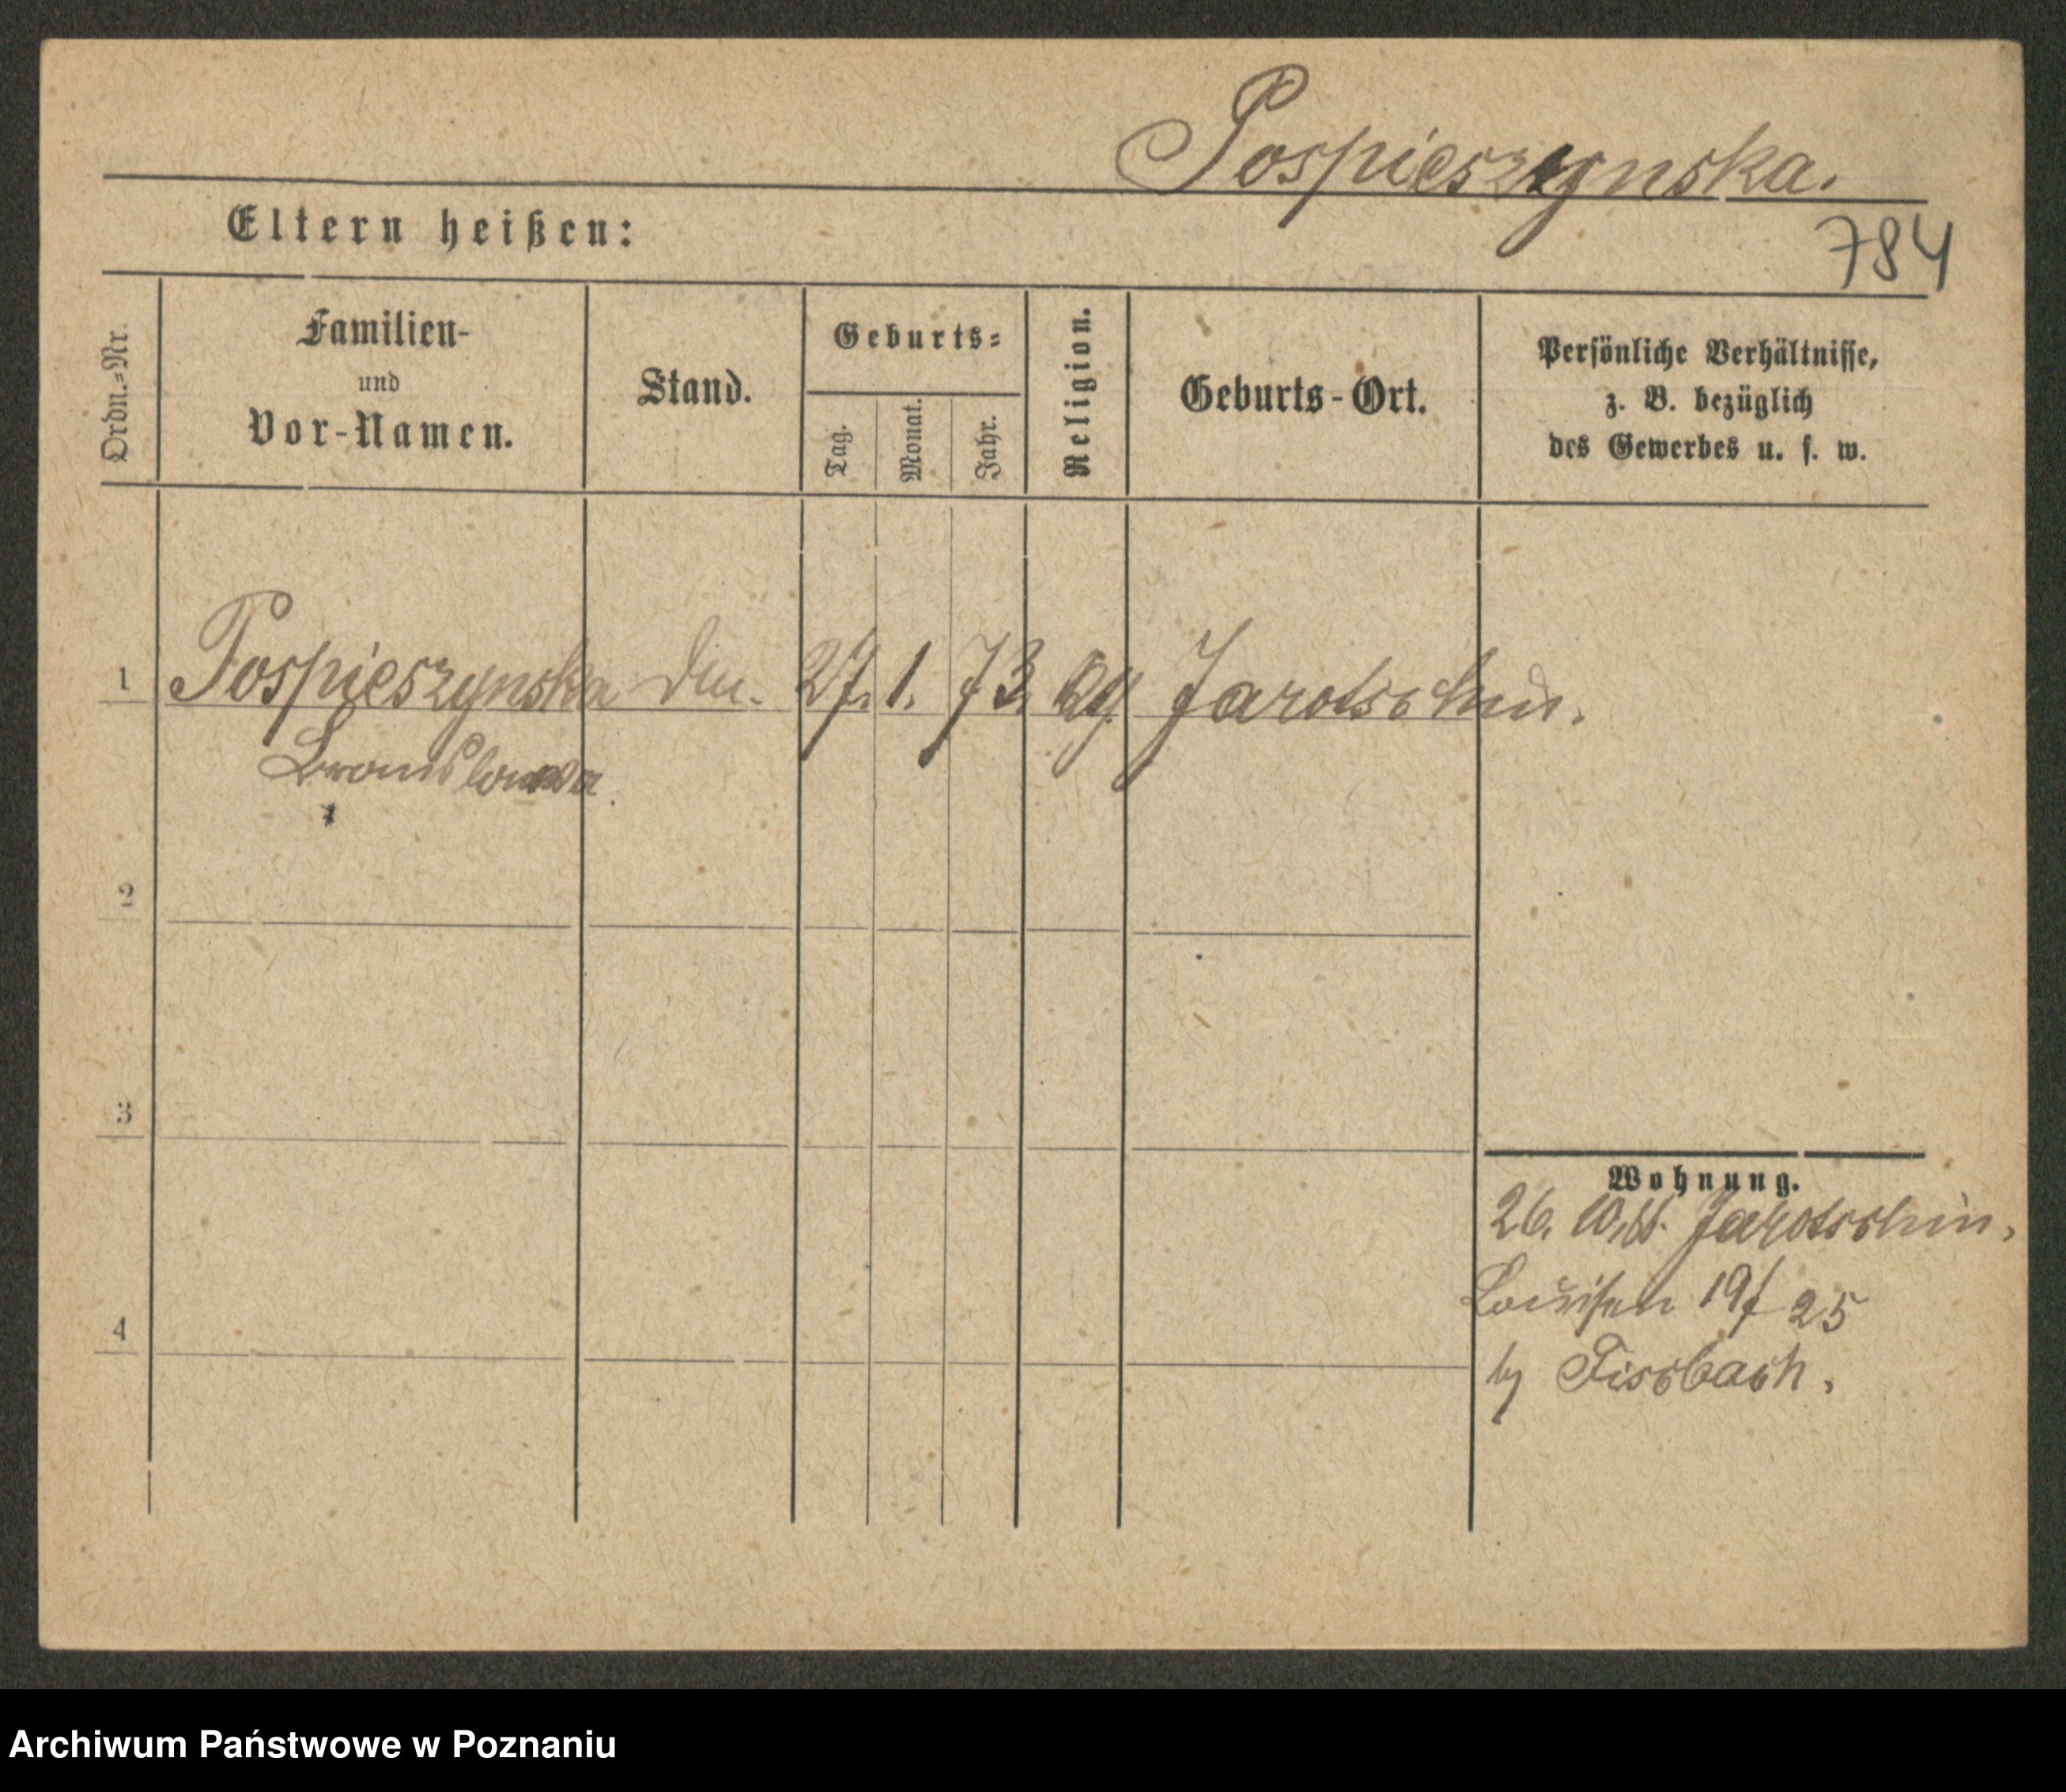 Pospieszynska.
Eltern heißen:
784
Ordn.=Nr.
Familien-
und
Vor-Namen.
Stand.
Geburts=
Tag.
Monat.
Jahr.
Religion.
Geburts-Ort.
Persönliche Verhältnisse,
z. B. bezüglich
des Gewerbes u. s. w.
1 Pospieszynska 27. 1. 73. Jarotschin.
Bronislowa
2
3
4
Wohnung.
26. Jarotschin.
Louisen 19 25
Fischbach.
Archiwum Państwowe w Poznaniu